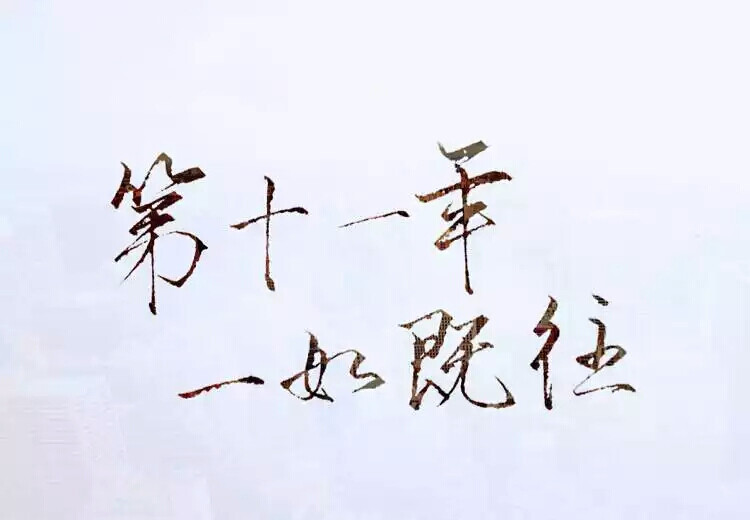 第十一年
一如既往